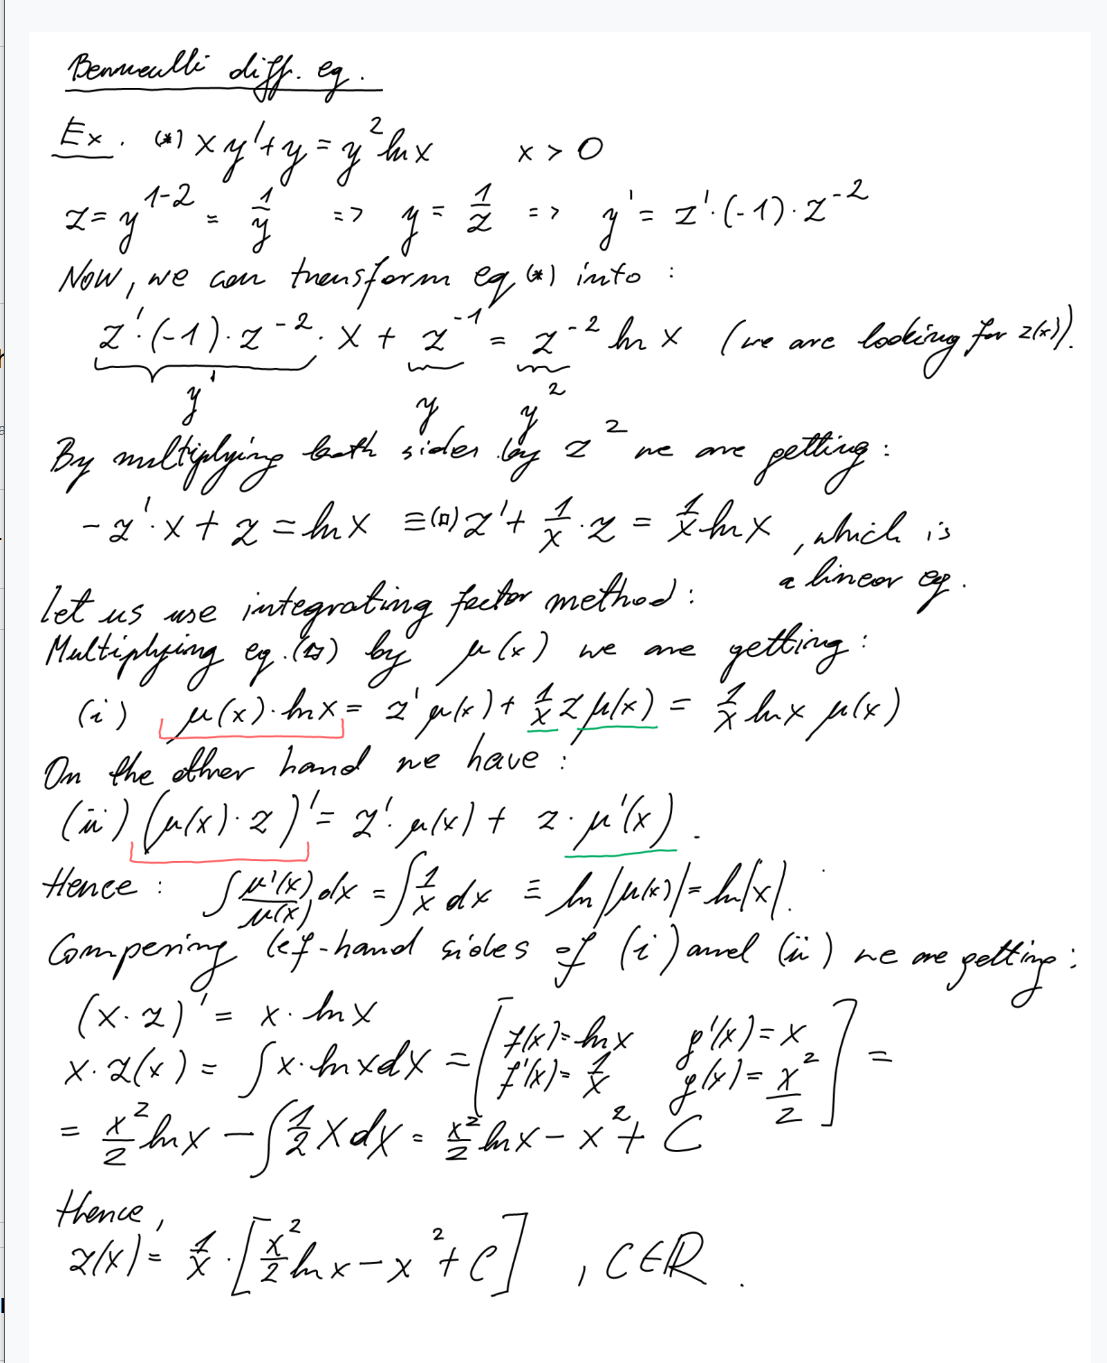 Bernoulli diff. eq.
Ex. (*) x y' + y = y² ln x     x > 0
z = y^{1-2} = 1/y => y = 1/z => y' = z'·(-1)·z^{-2}
Now, we can transform eq (*) into :
z'·(-1)·z^{-2}·x + z^{-1} = z^{-2} ln x (we are looking for z(x)).
y' y y²
By multiplying both sides by z² we are getting :
- z'·x + z = ln x ≡ (□) z' + 1/x · z = 1/x ln x , which is
a linear eq.
let us use integrating factor method :
Multiplying eq. (□) by μ(x) we are getting :
(i) μ(x)·ln x = z' μ(x) + 1/x z μ(x) = 1/x ln x μ(x)
On the other hand we have :
(ii) (μ(x)·z)' = z'·μ(x) + z·μ'(x) .
Hence : ∫ μ'(x)/μ(x) dx = ∫ 1/x dx ≡ ln|μ(x)| = ln|x| .
Compering lef-hand sides of (i) and (ii) we are getting :
(x·z)' = x·ln x
x·z(x) = ∫ x·ln x dx = [ f(x) = ln x  g'(x) = x
f'(x) = 1/x  g(x) = x²/2 ] =
= x²/2 ln x - ∫ 1/2 x dx = x²/2 ln x - x² + C
Hence ,
z(x) = 1/x · [ x²/2 ln x - x² + C ] , C ∈ R .